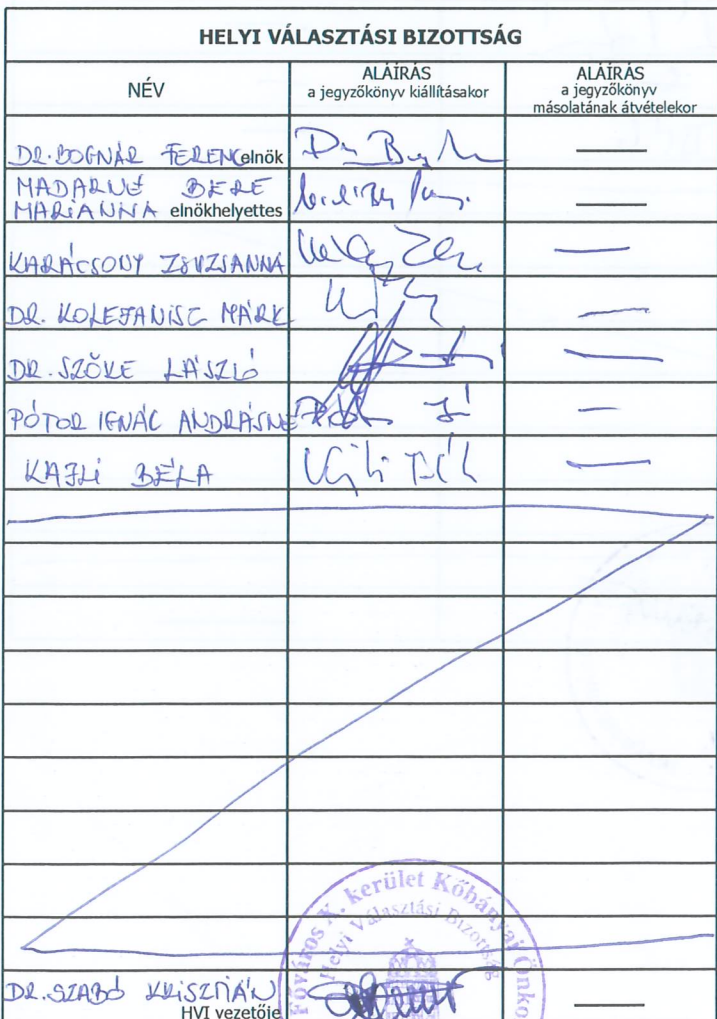 HELYI VÁLASZTÁSI BIZOTTSÁG
NÉV
ALÁÍRÁS
a jegyzőkönyv kiállításakor
ALÁÍRÁS
a jegyzőkönyv
másolatának átvételekor
DR. BOGNÁR FERENC elnök
MADARNÉ BERE
MARIANNA elnökhelyettes
KARÁCSONY ZSUZSANNA
DR. KOLEJANISZ MÁRK
DR. SZŐKE LÁSZLÓ
PÓTOR IGNÁC ANDRÁSNÉ
KAJLI BÉLA
Főváros X. kerület Kőbányai Önko
Helyi Választási Bizottság
DR. SZABÓ KRISZTIÁN
HVI vezetője